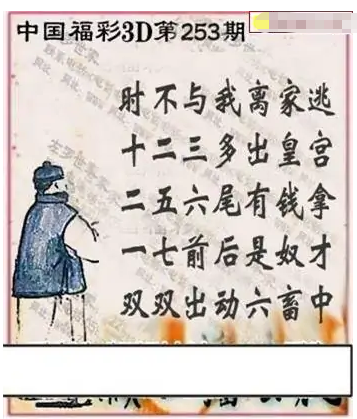 中国福彩3D第253期
时不与我离家逃
十二三多出皇宫
二五六尾有钱拿
一七前后是奴才
双双出动六畜中